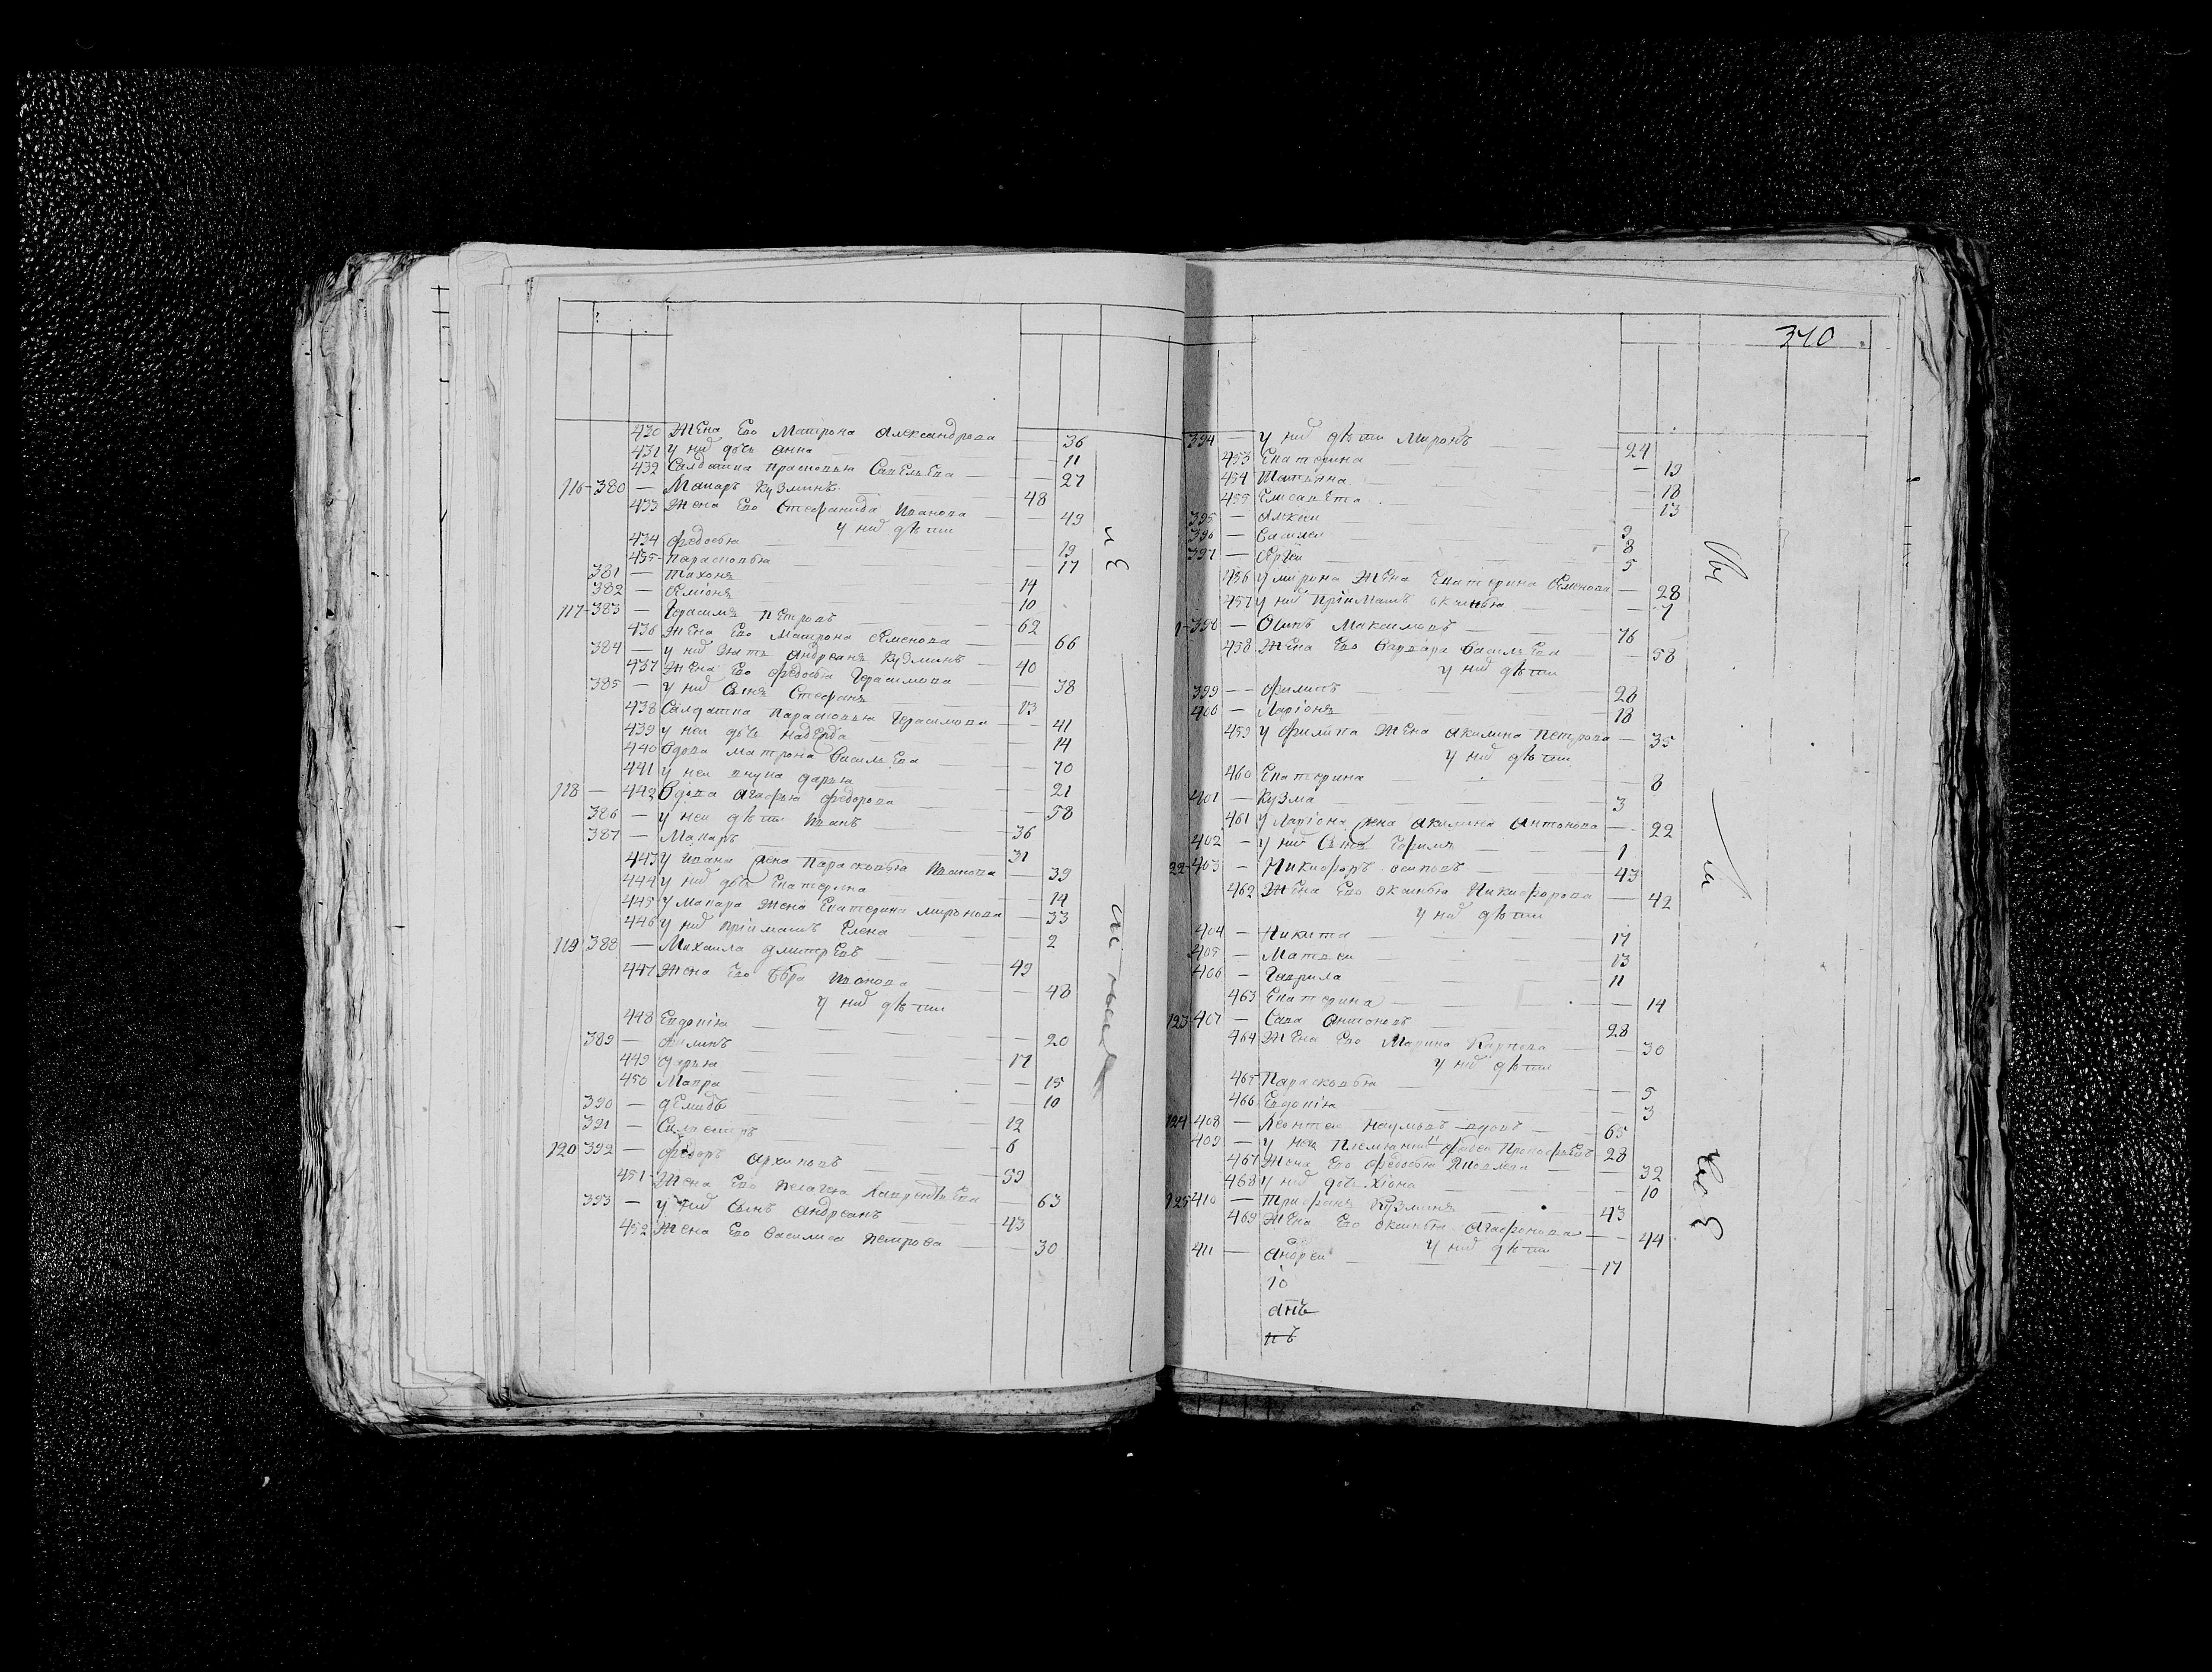 430 Жена Ево Матрона Александрова — 36
431 У них дочь Анна — 11
432 Салдатка Прасковья Савельева — 27
116 - 380 — Макаръ Кузминъ — 48
433 Жена Ево Стефанида Иванова — 49
У них дѣти
434 Федосья — 19
435 Парасковья — 17
381 — Тихонъ — 14
382 — Семіонъ — 10
117 - 383 — Герасимъ Петровъ — 62
436 Жена Ево Матрона Семенова — 66
384 — У них зять Андреанъ Кузминъ — 40
437 Жена Ево Федосья Герасимова — 38
385 — У них сынъ Стефанъ — 13
438 Салдатка Парасковья Герасимова — 41
439 У неи дочь Надежда — 14
440 Вдова Матрона Васильева — 70
441 У неи внука Дарья — 21
118 — 442 Вдова Агафья Федорова — 58
386 — У неи дѣти Иванъ — 36
387 — Макаръ — 31
443 У Ивана жена Парасковья Иванова — 39
444 У них дочь Екатерина — 14
445 У Макара жена Екатерина Миронова — 33
446 У них пріимашъ Елена — 2
119 388 — Михаила Дмитревъ — 49
447 Жена Ево Вѣра Иванова — 48
У них дѣти
448 Евдокія — 20
389 — Филипъ — 17
449 Дарья — 15
450 Мавра — 10
390 — Демидъ — 12
391 — Силвестръ — 6
120 392 — Федоръ Архиповъ — 59
451 Жена Ево Пелагея Лаврентьева — 63
393 — У них сынъ Андреанъ — 43
452 Жена Ево Василиса Петрова — 30
340
394 — У них дѣти Миронъ — 24
453 Екатерина — 19
454 Татьяна — 18
455 Елисавета — 13
395 — Алексеи — 9
396 — Василеи — 8
397 — Сергеи — 5
456 У Мирона жена Екатерина Семенова — 28
457 У них пріимашъ Оксинья — 7
1 - 398 — Осипъ Максимовъ — 76
458 Жена Ево Варвара Васильева — 58
У них дѣти
399 — Филипъ — 26
400 — Ларіонъ — 18
459 У Филипа жена Акилина Петрова — 35
У них дѣти
460 Екатерина — 8
401 — Кузма — 3
461 У Ларіона жена Акилина Антонова — 22
402 — У них сынъ Ефимъ — 1
22 - 403 — Никифоръ Осиповъ — 43
462 Жена Ево Оксинья Никифорова — 42
У них дѣти
404 — Никита — 17
405 — Матвеи — 13
406 — Гаврила — 11
463 Екатерина — 14
123 - 407 — Сава Антоновъ — 28
464 Жена Ево Марина Карпова — 30
У них дѣти
465 Парасковья — 5
466 Евдокія — 3
124 408 — Леонтеи Наумовъ вдовъ — 65
409 — У неи племянникъ Фадеи Прокофьевъ 28
467 Жена Ево Федосья — 32
468 У них дочь Хіона — 10
125 410 — Трифанъ Кузминъ — 43
469 Жена Ево Оксинья Агафонова — 44
У них дѣти
411 — Андреи — 17